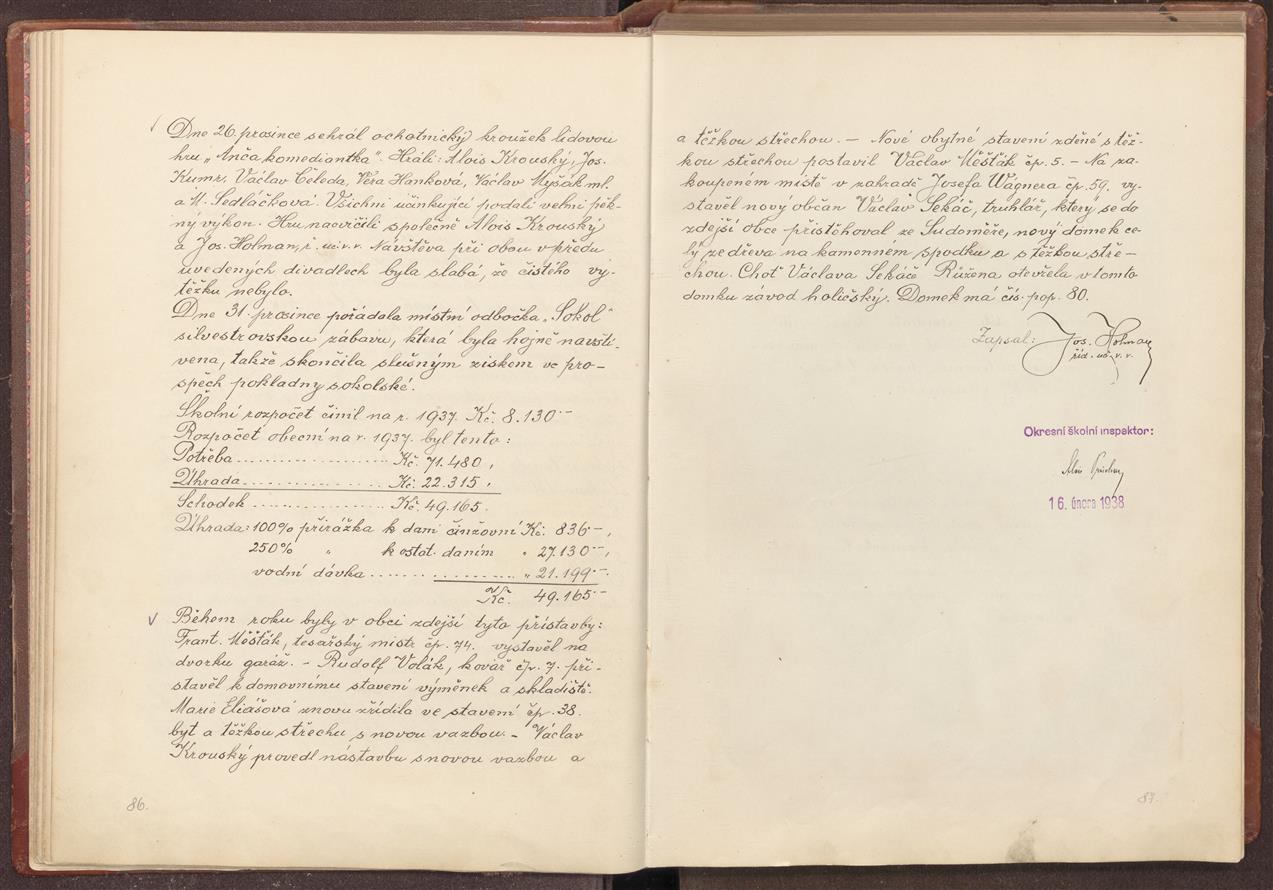 Dne 26. prosince sehrál ochotnický kroužek lidovou
hru „Anča komediantka". Hráli: Alois Krouský, Jos.
Kumr, Václav Čeleda, Věra Hanková, Václav Myšák ml.
a M. Sedláčková. Všichni účinkující podali velmi pěk-
ný výkon. Hru nacvičili společně Alois Krouský
a Jos. Holman, ř. uč. v. v. Návštěva při obou v předu
uvedených divadlech byla slabá, že čistého vý-
těžku nebylo.
Dne 31. prosince pořádala místní odbočka „Sokol"
silvestrovskou zábavu, která byla hojně navští-
vena, takže skončila slušným ziskem ve pro-
spěch pokladny sokolské.
Školní rozpočet činil na r. 1937. Kč. 8.130·–
Rozpočet obecní na r. 1937. byl tento:
Potřeba .................... Kč. 71.480,
Úhrada .................... Kč. 22.315,
Schodek .................... Kč. 49.165.
Úhrada: 100% přirážka k dani činžovní Kč. 836·–,
250% „ k ostat. daním „ 27.130·–,
vodní dávka .................... „ 21.199·–.
Kč. 49.165·–
V Během roku byly v obci zdejší tyto přístavby:
Frant. Měšťák, tesařský mistr čp. 74. vystavěl na
dvorku garáž. – Rudolf Volák, kovář čp. 7. při-
stavěl k domovnímu stavení výměnek a skladiště.
Marie Eliášová znovu zřídila ve stavení čp. 38.
byt a těžkou střechu s novou vazbou. – Václav
Krouský provedl nástavbu s novou vazbou a
86.
a těžkou střechou. – Nové obytné stavení zděné s těž-
kou střechou postavil Václav Měšťák čp. 5. – Na za-
koupeném místě v zahradě Josefa Wagnera čp. 59. vy-
stavěl nový občan Václav Sekáč, truhlář, který se do
zdejší obce přistěhoval ze Sudoměře, nový domek ce-
lý ze dřeva na kamenném spodku a s těžkou stře-
chou. Choť Václava Sekáč Růžena otevřela v tomto
domku závod holičský. Domek má čís. pop. 80.
Zapsal: Jos. Holman
říd. uč. v. v.
Okresní školní inspektor:
16. února 1938
87.